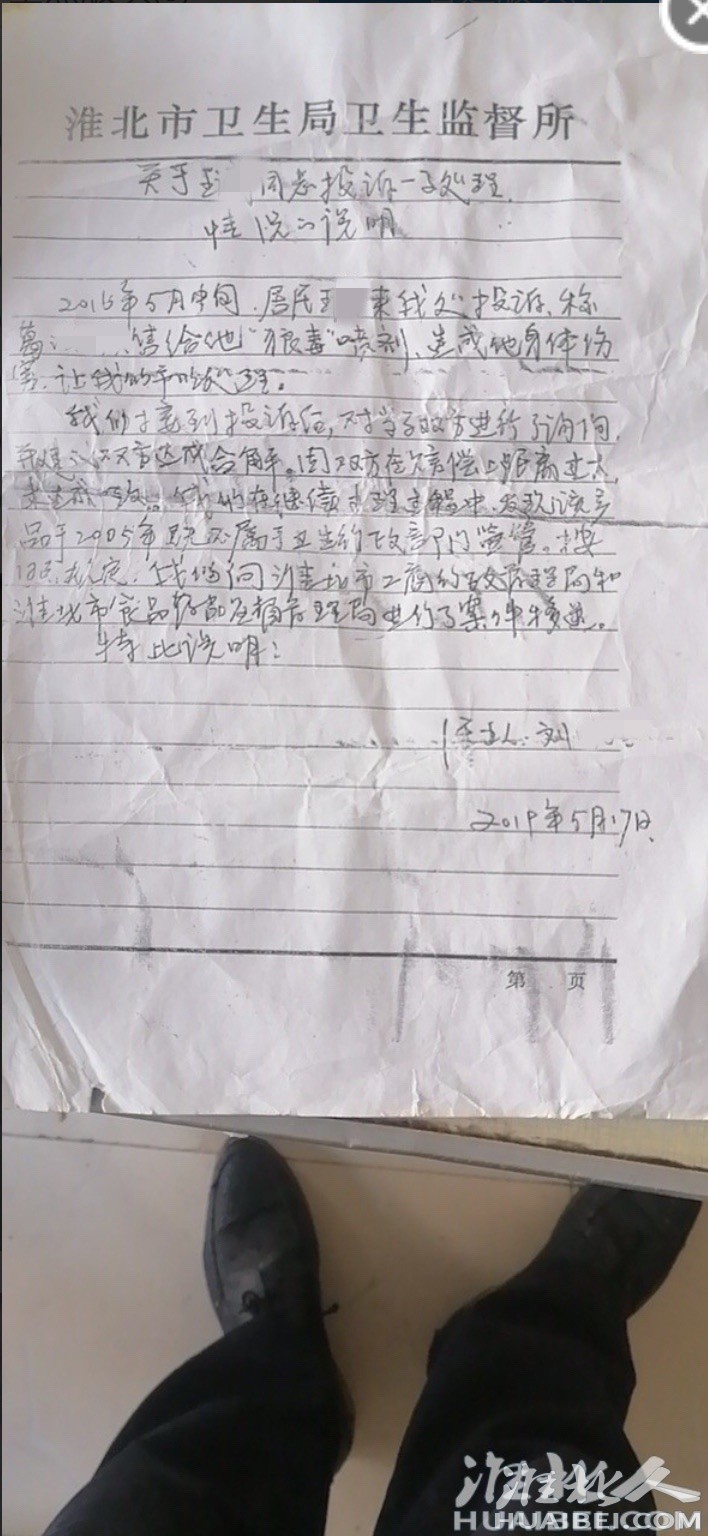 淮北市卫生局卫生监督所
关于王 同志投诉一事处理
情况的说明
2016年5月中旬,居民王 来我处投诉,称
葛 售给他"狼毒"喷剂,造成他身体伤
害,让我们帮 处理。
我们接到投诉后,对当事双方进行了询问,
并建议双方达成合解。因双方在赔偿上距离过大,
未达成一致。我们在继续办理过程中,发现该产
品于2005年 不属于卫生行政部门监管。按
规定,我们向淮北市工商行政管理局和
淮北市食品药品监督管理局进行了案件移送。
特此说明:
刘
2019年5月17日
第 页
淮北人
HUAIBEI.COM